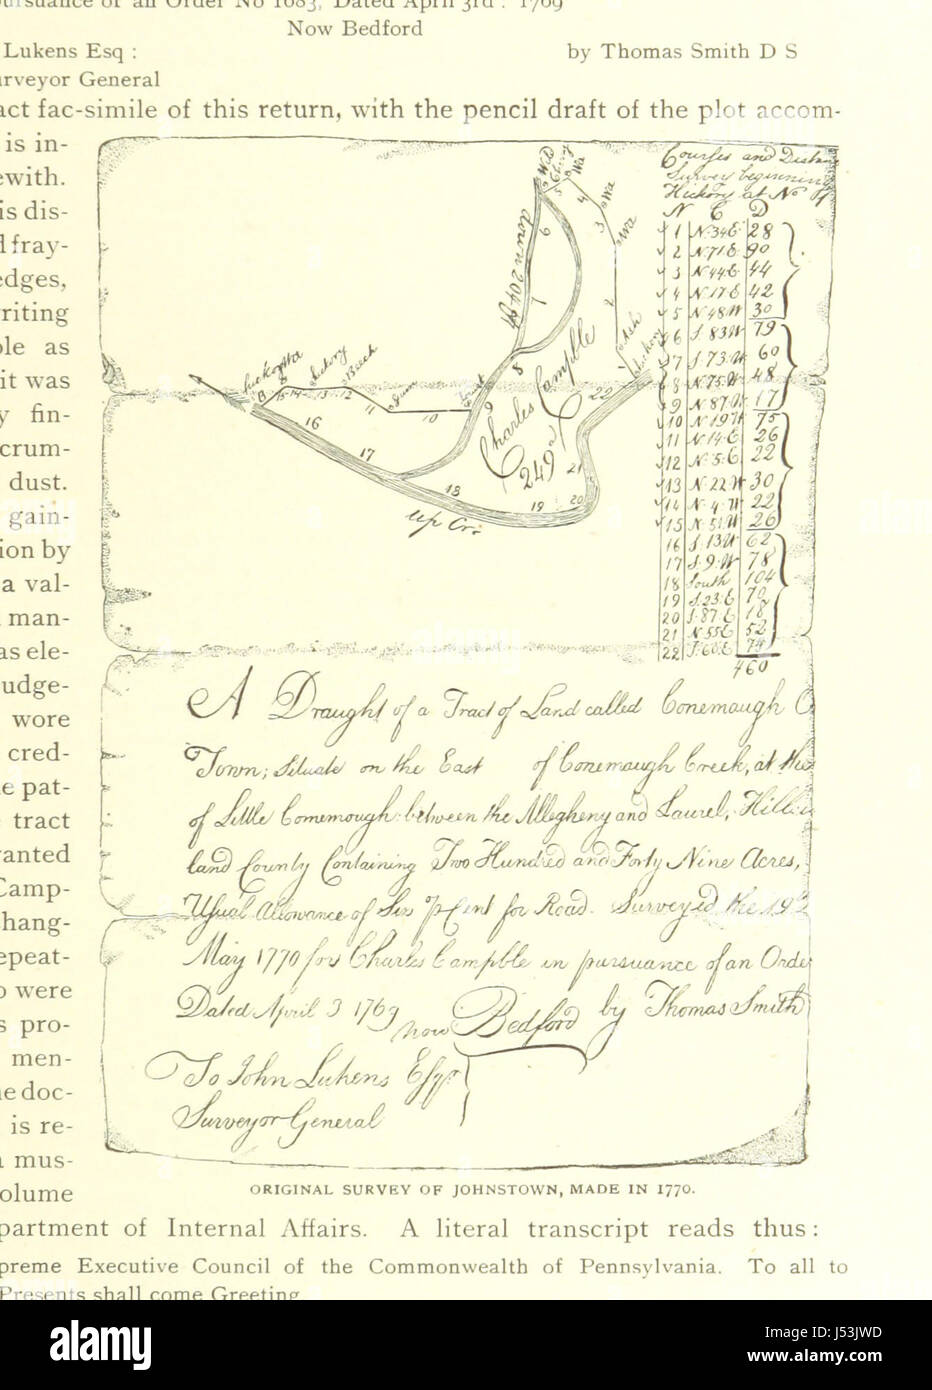 ursuance of an Order No 1083, Dated April 3rd : 1769
Now Bedford
Lukens Esq : by Thomas Smith D S
urveyor General
act fac-simile of this return, with the pencil draft of the plot accom-
is in-
ewith.
is dis-
d fray-
edges,
riting
ble as
it was
y fin-
crum-
dust.
gain-
ion by
a val-
man-
as ele-
udge-
wore
cred-
e pat-
tract
ranted
Camp-
chang-
epeat-
o were
s pro-
men-
he doc-
is re-
a mus-
olume
Courses and Distan
Survey beginning
Hickory at No
N C D
1 N.34E 28
2 N.71.E 90
3 N.44E 44
4 N.17E 42
5 N.48W 30
6 S.83W 79
7 S.73.W 60
8 N.75.W 48
9 N.87.W 17
10 N.19W 75
11 N.14.E 26
12 N.5.E 22
13 N.22W 30
14 N.4.W 22
15 N.51W 26
16 S.13W 62
17 S.9.W 78
18 South 104
19 S.23.E 70
20 S.87.E 18
21 N.55E 52
22 S.60.E 74
460
W.O
Cherry
Wa
Wa
Wa
5
4
3
6
down 204 pf
7
2
Ash
Hickory
8
Charles Campble
249a
22
Hickory
Beech
B
15-14-13-12
11
10
9
16
17
18
19
20
21
up Cr.
A Draught of a Tract of Land called Conemaugh O
Town; Situate on the East of Conemaugh Creek, at the
of Little Comemough between the Allegheny and Laurel, Hills
land County Containing Two Hundred and Forty Nine Acres,
Usual Allowance of Six p Cent for Road. Surveyed the 19th
May 1770 for Charles Campble in pursuance of an Orde
Dated April 3 1769
now Bedford by Thomas Smith
To John Lukens Esqr
Surveyor General
ORIGINAL SURVEY OF JOHNSTOWN, MADE IN 1770.
partment of Internal Affairs. A literal transcript reads thus :
preme Executive Council of the Commonwealth of Pennsylvania. To all to
Presents shall come Greeting
alamy
J53JWD
www.alamy.com